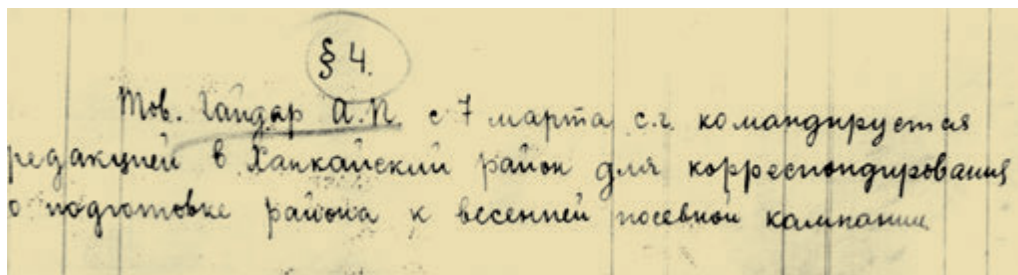 § 4.
Тов. Гайдар А.П. с 7 марта с.г. командируется
редакцией в Ханкайский район для корреспондирования
о подготовке района к весенней посевной кампании